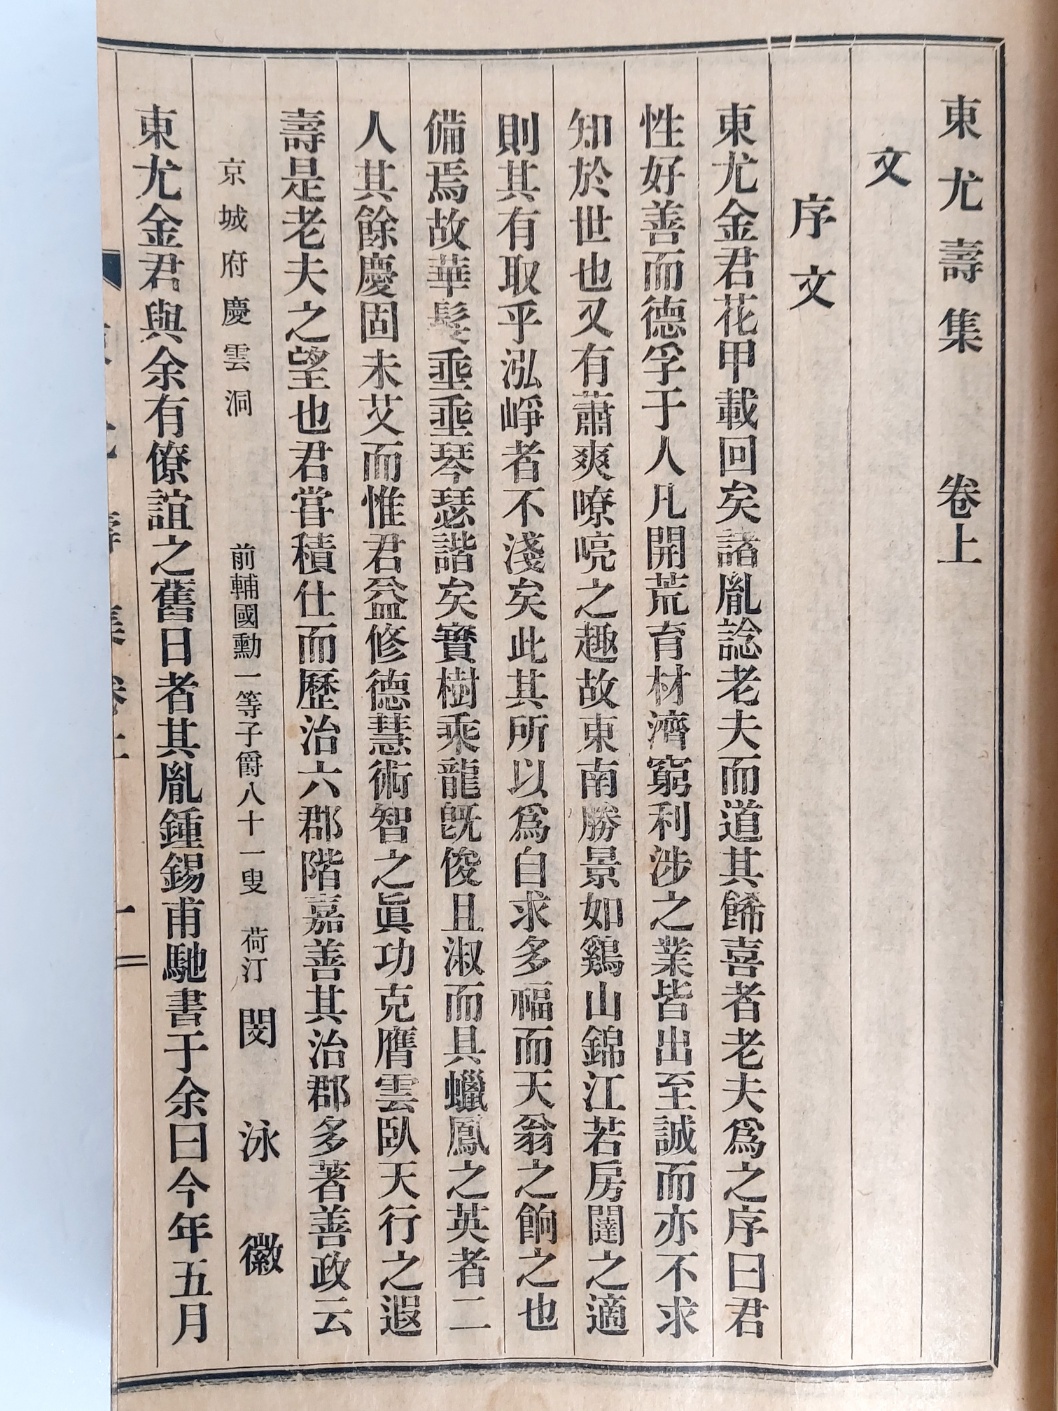 東尤壽集　卷上
文
序文
東尤金君花甲載回矣諸胤諗老夫而道其餙喜者老夫爲之序曰君
性好善而德孚于人凡開荒育材濟窮利涉之業皆出至誠而亦不求
知於世也又有蕭爽嘹喨之趣故東南勝景如鷄山錦江若房闥之適
則其有取乎泓崢者不淺矣此其所以爲自求多福而天翁之餉之也
備焉故華髮垂垂琴瑟諧矣寶樹乘龍旣俊且淑而具蠟鳳之英者二
人其餘慶固未艾而惟君益修德慧術智之眞功克膺雲臥天行之遐
壽是老夫之望也君甞積仕而歷治六郡階嘉善其治郡多著善政云
京城府慶雲洞　前輔國勳一等子爵八十一叟　荷汀　閔泳徽
東尤金君與余有僚誼之舊日者其胤鍾錫甫馳書于余曰今年五月